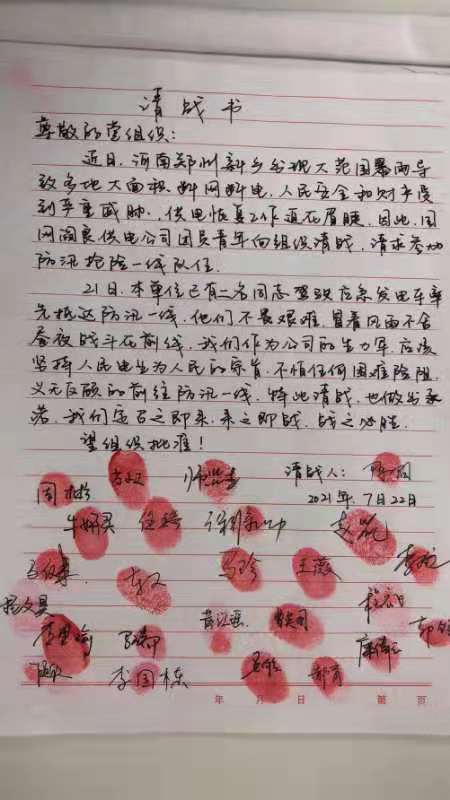 请战书
尊敬的党组织：
近日，河南郑州新乡出现大范围暴雨导
致多地大面积断网断电，人民安全和财产受
到严重威胁，供电恢复工作迫在眉睫，因此，国
网阎良供电公司团员青年向组织请战，请求参加
防汛抢险一线队伍。
21日，本单位已有二名同志驾驶应急发电车率
先抵达防汛一线，他们不畏艰难，冒着风雨不舍
昼夜战斗在前线，我们作为公司的生力军，应该
坚持人民电业为人民的宗旨，不怕任何困难险阻，
义无反顾的前往防汛一线，特此请战，也做出承
诺，我们定召之即来，来之即战，战之必胜。
望组织批准！
请战人：
2021年 7月22日
牛妍君
马玲 王燕
李国栋 郝育
年 月 日 第 页